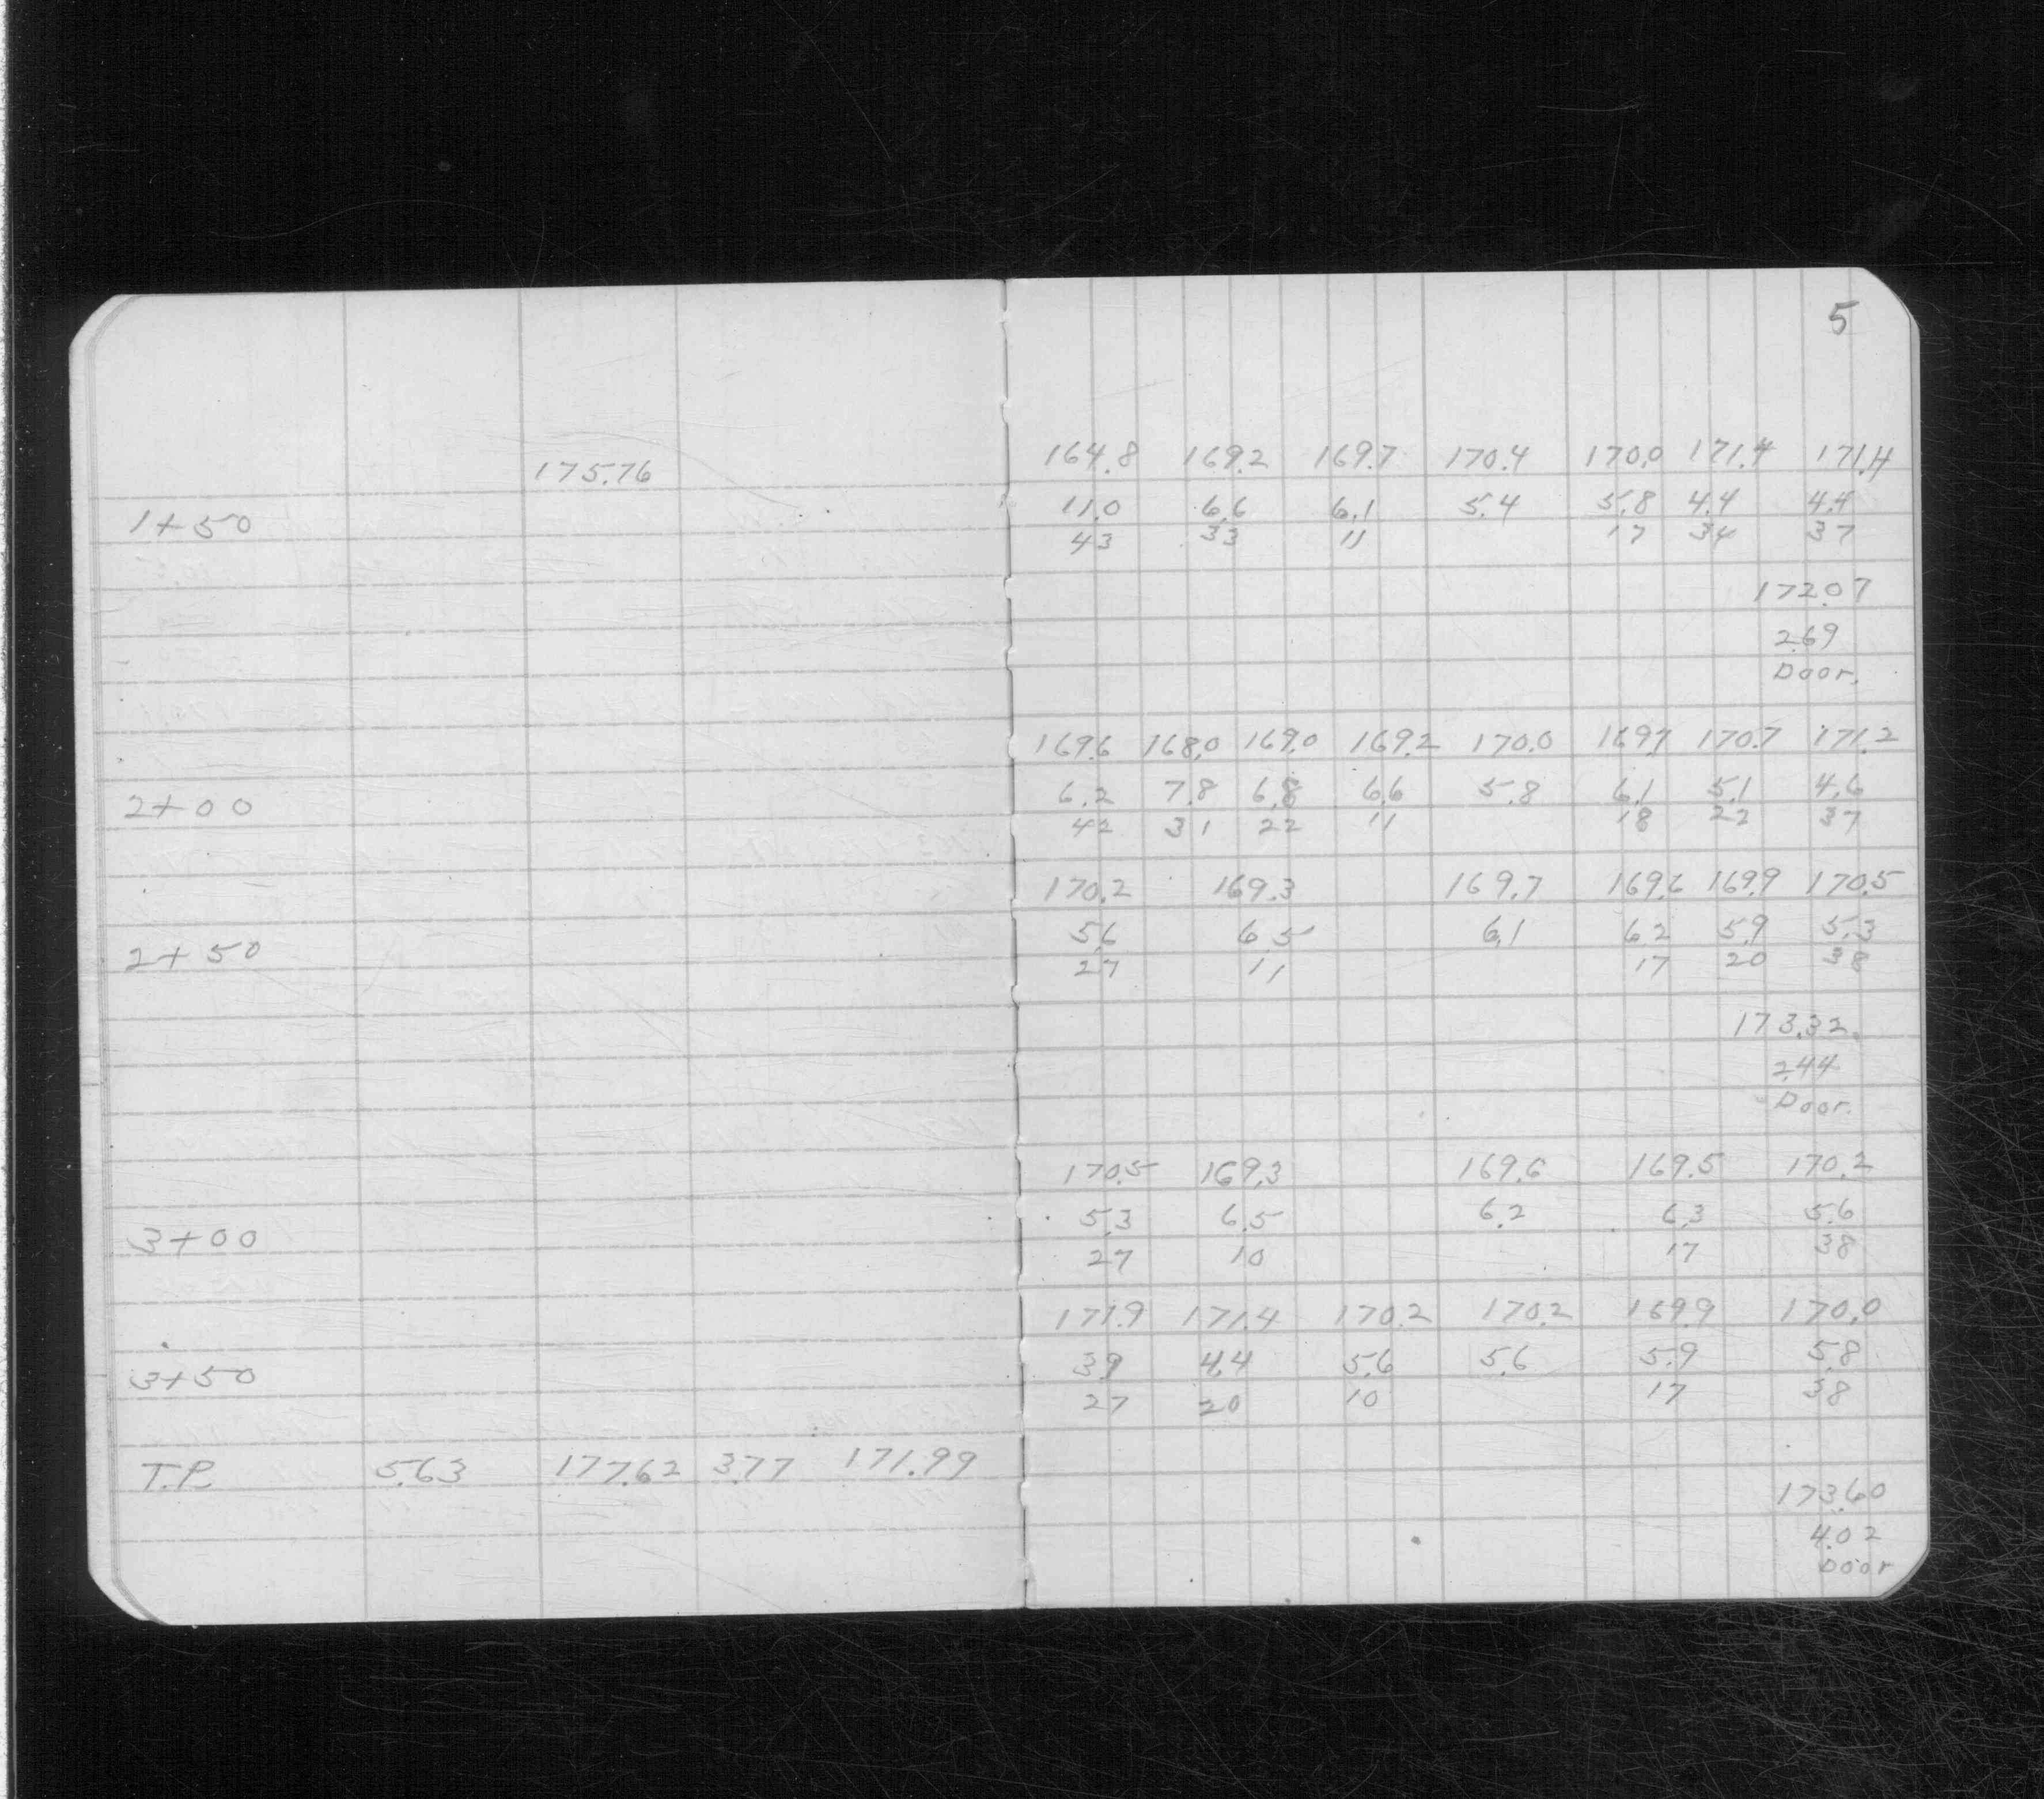 5
175.76 164.8 169.2 169.7 170.4 170.0 171.4 171.4
1+50 11.0 6.6 6.1 5.4 5.8 4.4 4.4
43 33 11 17 34 37
172.07
2.69
Door.
169.6 168.0 169.0 169.2 170.0 169.7 170.7 171.2
2+00 6.2 7.8 6.8 6.6 5.8 6.1 5.1 4.6
42 31 22 11 18 22 37
170.2 169.3 169.7 169.6 169.9 170.5
2+50 5.6 6.5 6.1 6.2 5.9 5.3
27 11 17 20 38
173.32
2.44
Door.
170.5 169.3 169.6 169.5 170.2
3+00 5.3 6.5 6.2 6.3 5.6
27 10 17 38
171.9 171.4 170.2 170.2 169.9 170.0
3+50 3.9 4.4 5.6 5.6 5.9 5.8
27 20 10 17 38
T.P. 5.63 177.62 3.77 171.99
173.60
4.02
Door